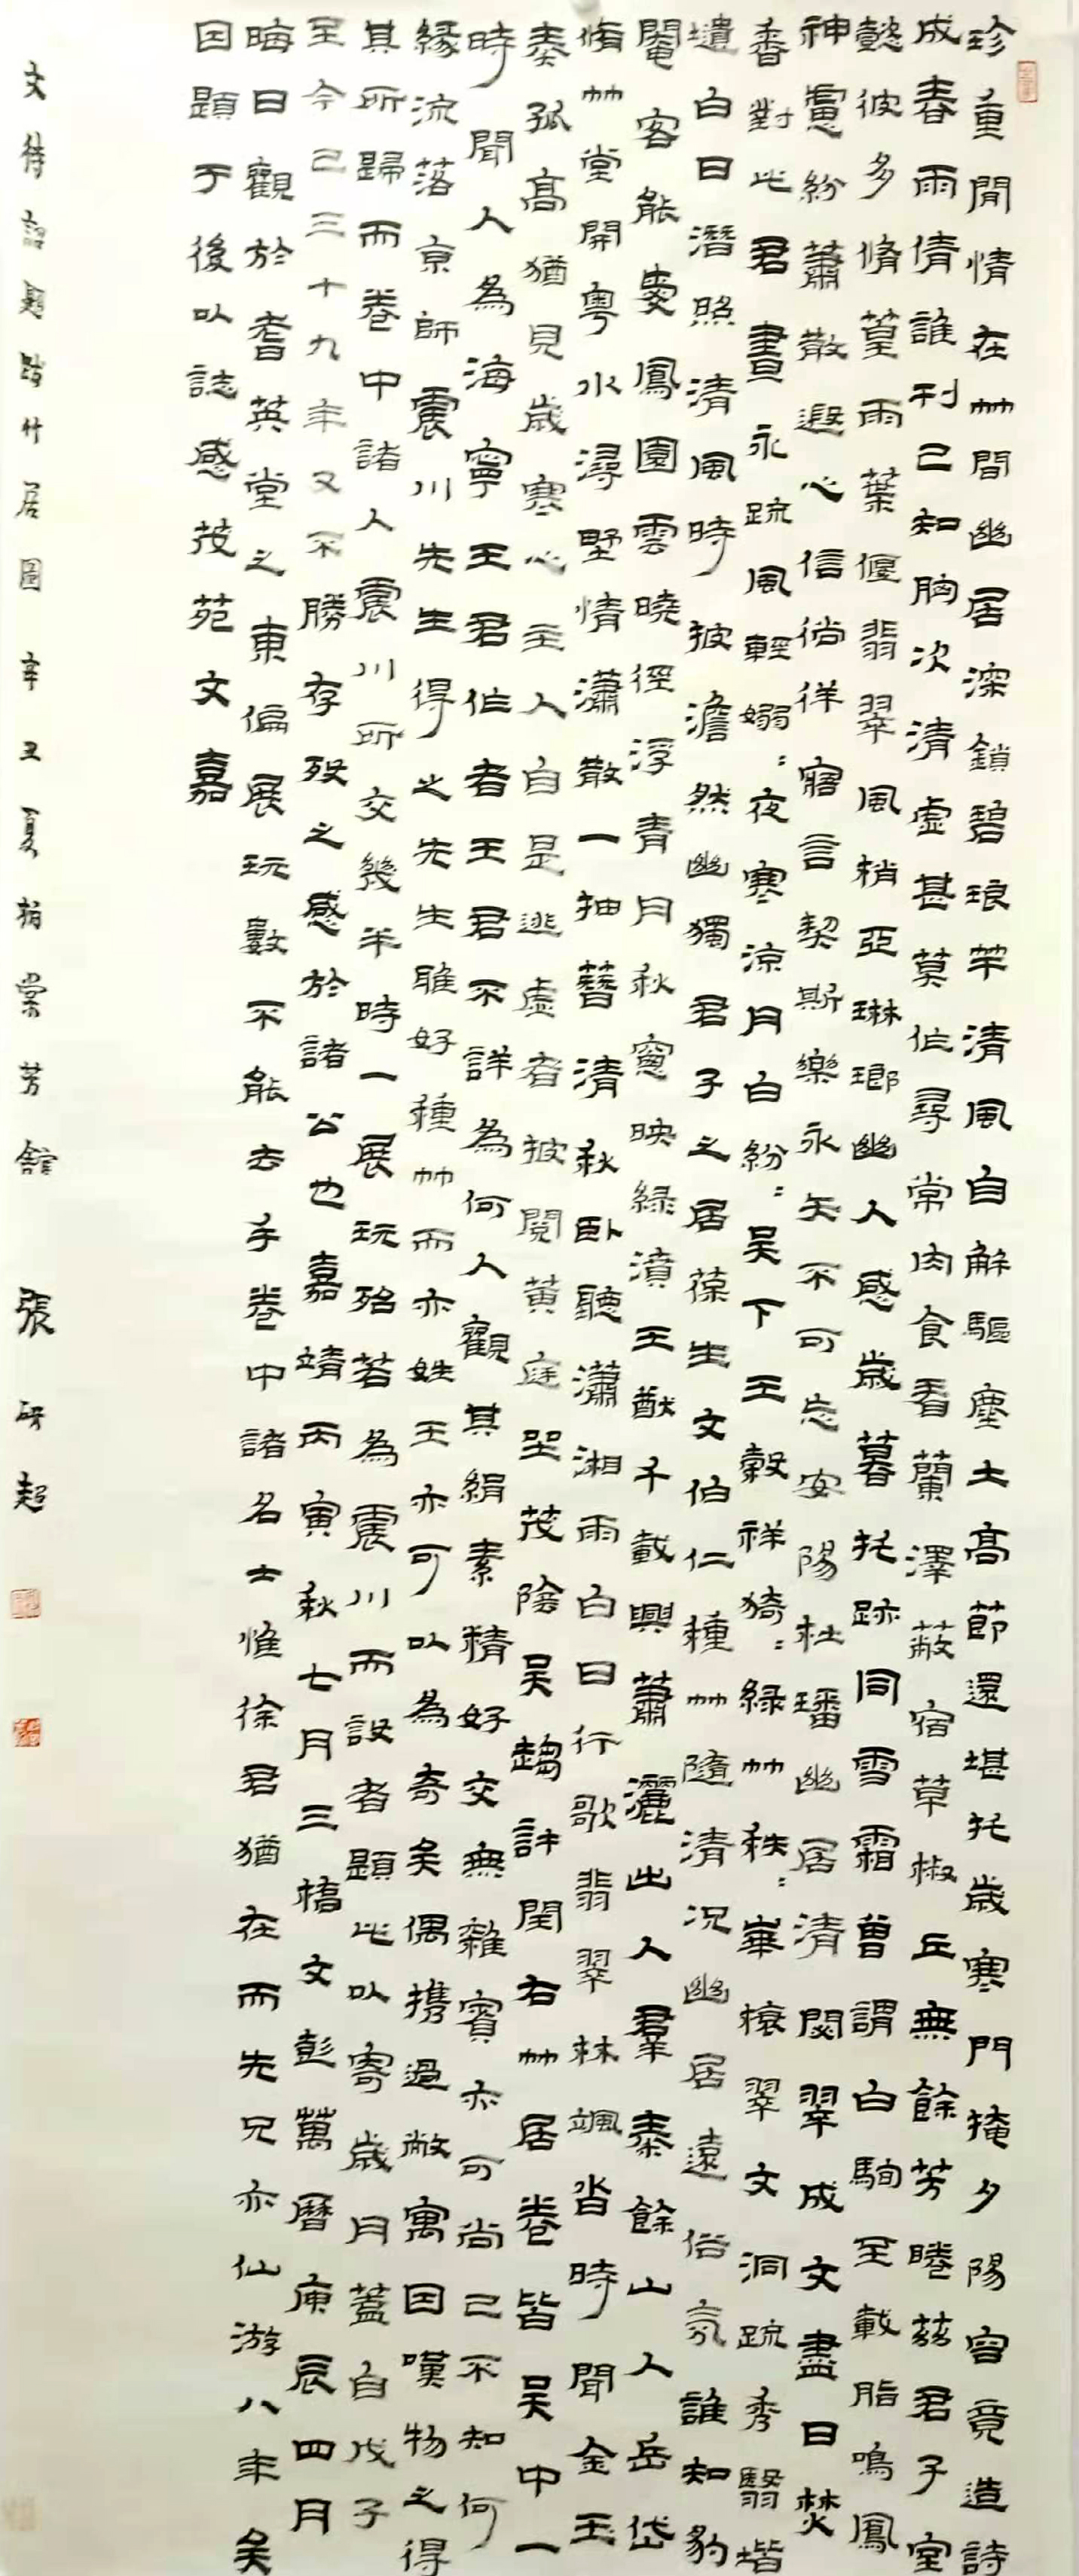 珍重閒情在竹間幽居深鎖碧琅竿清風自解驅塵土高節還堪托歲寒門掩夕陽容竟造詩
成春雨倩誰刊已知胸次清虛甚莫作尋常肉食看蘭澤蔽宿草椒丘無餘芳睠茲君子室
懿彼多脩篁雨葉偃翡翠風梢亞琳瑯幽人感歲暮托跡同雪霜曾謂白駒至載脂鳴鳳
神慮紛蕭散遐心信徜徉寤言契斯樂永矢不可忘安陽杜璠幽居清閟翠成文盡日焚
香對此君晝永疏風輕嫋〻夜寒涼月白紛〻吳下王穀祥猗〻綠竹秩〻崋榱翠文洞疏秀翳堦
壝白日潛照清風時披澹然幽獨君子之居葆生文伯仁種竹隨清況幽居遠俗氛誰知豹
闔客能要鳳園雲曉徑浮青月秋窗映綠濆王猷千載興蕭灑出人羣泰餘山人岳岱
脩竹堂開粵水潯野情瀟散一抽簪清秋臥聽瀟湘雨白日行歌翡翠林颯沓時聞金玉
奏孤高猶見歲寒心主人自是逃虛者披閱黃庭坐茂陰吳趨許閏右竹居卷皆吳中一
時聞人為海寧王君作者王君不詳為何人觀其絹素精好交無雜賓亦可尚已不知何
緣流落京師震川先生得之先生雖好種竹而亦姓王亦可以為奇矣偶携過敝寓因嘆物之得
其所歸而卷中諸人震川所交幾半時一展玩殆若為震川而設者題此以寄歲月蓋自戊子
至今已三十九年又不勝存歿之感於諸公也嘉靖丙寅秋七月三橋文彭萬曆庚辰四月
晦日觀於耆英堂之東偏展玩數不能去手卷中諸名士惟徐君猶在而先兄亦仙游八年矣
因題于後以誌感茂苑文嘉
文待詔題跋竹居圖 辛丑夏 芳館 張研超